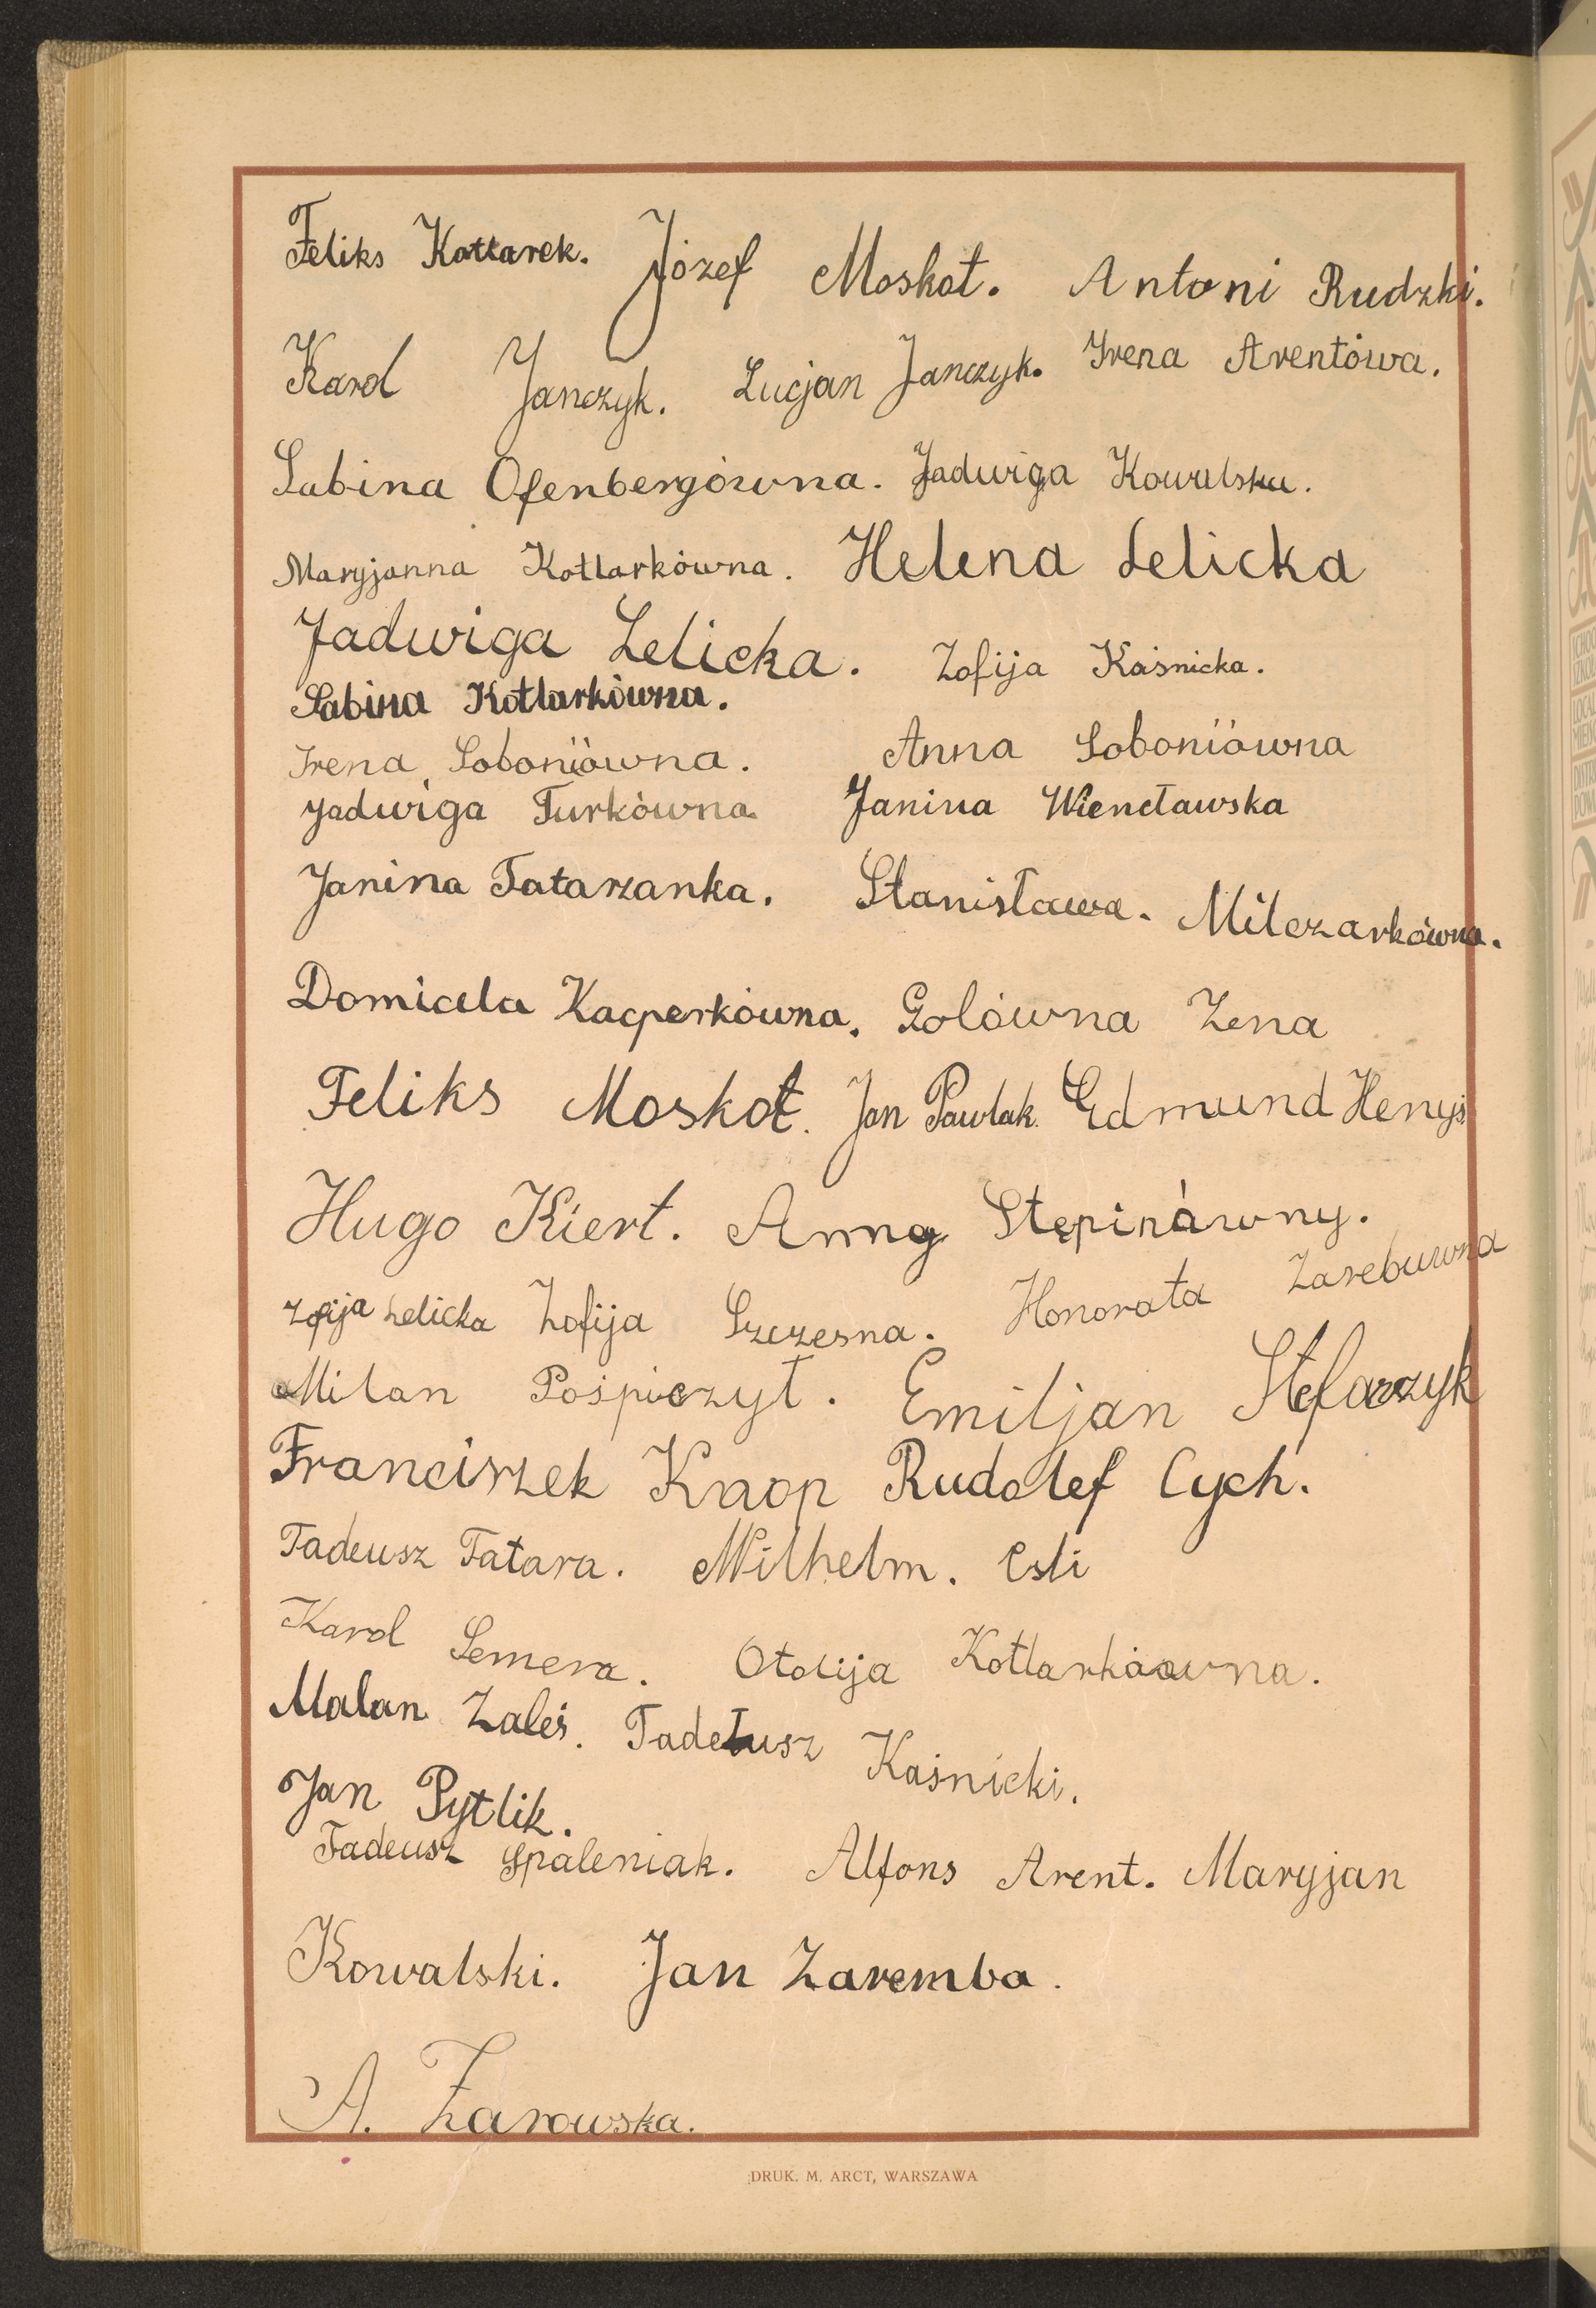 Feliks Kotlarek. Józef Moskot. Antoni Rudzki.
Karol Janczyk. Lucjan Janczyk. Irena Arentówa.
Sabina Ofenbergówna. Jadwiga Kowalska.
Maryjanna Kotlarkówna. Helena Lelicka
Jadwiga Lelicka. Zofija Kaśnicka.
Sabina Kotlarkówna.
Irena Soboniówna. Anna Soboniówna
Jadwiga Turkówna Janina Wiencławska
Janina Tatarzanka. Stanisława. Milczarkówna.
Domicela Kacperkówna. Golówna Zena
Feliks Moskot. Jan Pawlak. Edmund Henyś
Hugo Kiert. Anna Stępinówny.
Zofija Lelicka Zofija Szczesna. Honorata Zarebuwna
Milan Pośpieszył. Emiljan Stefarzyk
Franciszek Knop Rudolef Cych.
Tadeusz Tatara. Wilhelm. Esli
Karol Semera. Otolija Kotlarkówna.
Malan Zaleś. Tadeusz Kaśnicki.
Jan Pytlik.
Tadeusz Spaleniak. Alfons Arent. Maryjan
Kowalski. Jan Zaremba.
A. Żarowska.
DRUK. M. ARCT, WARSZAWA